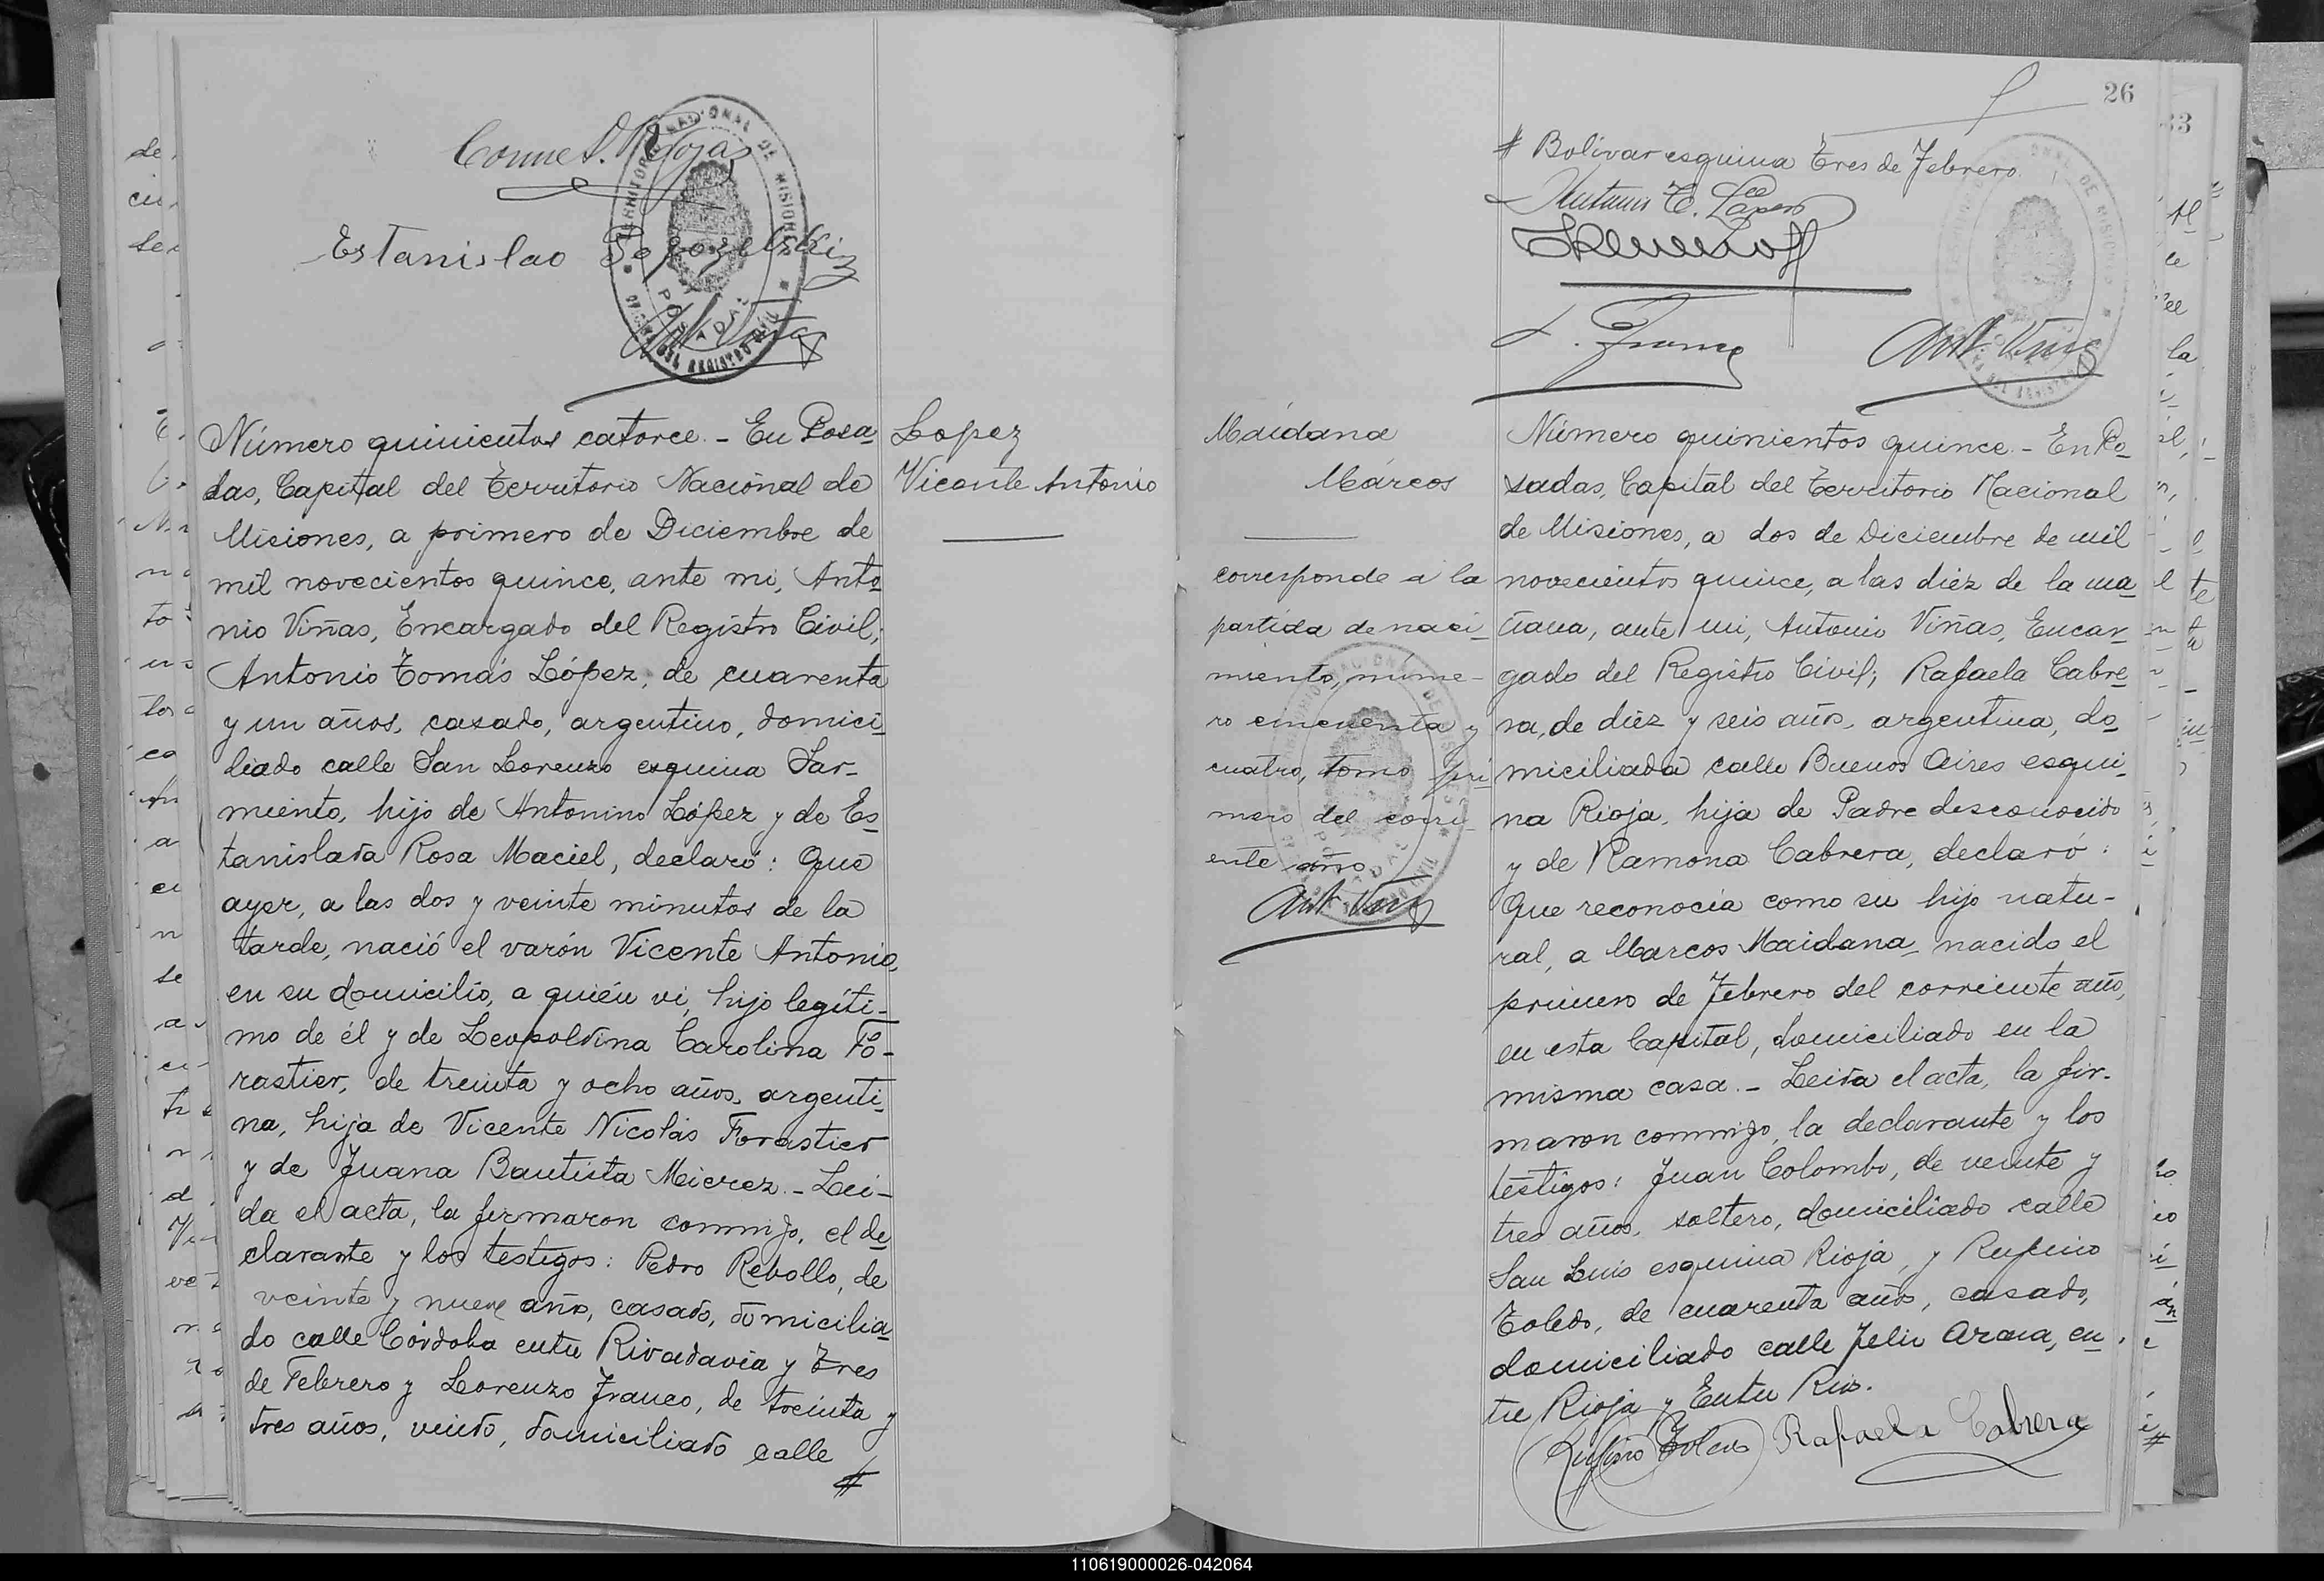 Estanislao
TERRITORIO NACIONAL DE MISIONES
POSADAS
OFICINA DEL REGISTRO CIVIL
Número quinientos catorce. - En Posa-
das, Capital del Territorio Nacional de
Misiones, a primero de Diciembre de
mil novecientos quince, ante mi, Anto-
nio Viñas, Encargado del Registro Civil;
Antonio Tomás López, de cuarenta
y un años, casado, argentino, domici-
liado calle San Lorenzo esquina Sar-
miento, hijo de Antonino López y de Es-
tanislada Rosa Maciel, declaró: Que
ayer, a las dos y veinte minutos de la
tarde, nació el varón Vicente Antonio,
en su domicilio, a quién vi, hijo legíti-
mo de él y de Leopoldina Carolina Fo-
rastier, de treinta y ocho años, argenti-
na, hija de Vicente Nicolás Forastier
y de Juana Bautista Mierez. - Lei-
da el acta, la firmaron conmigo, el de-
clarante y los testigos: Pedro Rebollo, de
veinte y nueve años, casado, domicilia-
do calle Córdoba entre Rivadavia y Tres
de Febrero y Lorenzo Franco, de treinta y
tres años, viudo, domiciliado calle
#
Lopez
Vicente Antonio
26
# Bolivar esquina Tres de Febrero
Maidana
Márcos
corresponde a la
partida de naci-
miento, núme-
ro cincuenta y
cuatro, tomo pri-
mero del corri-
ente año
Número quinientos quince. - En Po-
sadas, Capital del Territorio Nacional
de Misiones, a dos de Diciembre de mil
novecientos quince, a las diéz de la ma-
ñana, ante mi, Antonio Viñas, Encar-
gado del Registro Civil; Rafaela Cabre-
ra, de diéz y seis años, argentina, do-
miciliada calle Buenos Aires esqui-
na Rioja, hija de Padre desconocido
y de Ramona Cabrera, declaró:
Que reconocia como su hijo natu-
ral, a Marcos Maidana, nacido el
primero de Febrero del corriente año,
en esta Capital, domiciliado en la
misma casa. - Leida el acta, la fir-
maron conmigo, la declarante y los
testigos: Juan Colombo, de veinte y
tres años, soltero, domiciliado calle
San Luis esquina Rioja, y Rufino
Toledo, de cuarenta años, casado,
domiciliado calle Felix Azara, en-
tre Rioja y Entre Rios.
Rufino Toledo Rafaela Cabrera
33
110619000026-042064